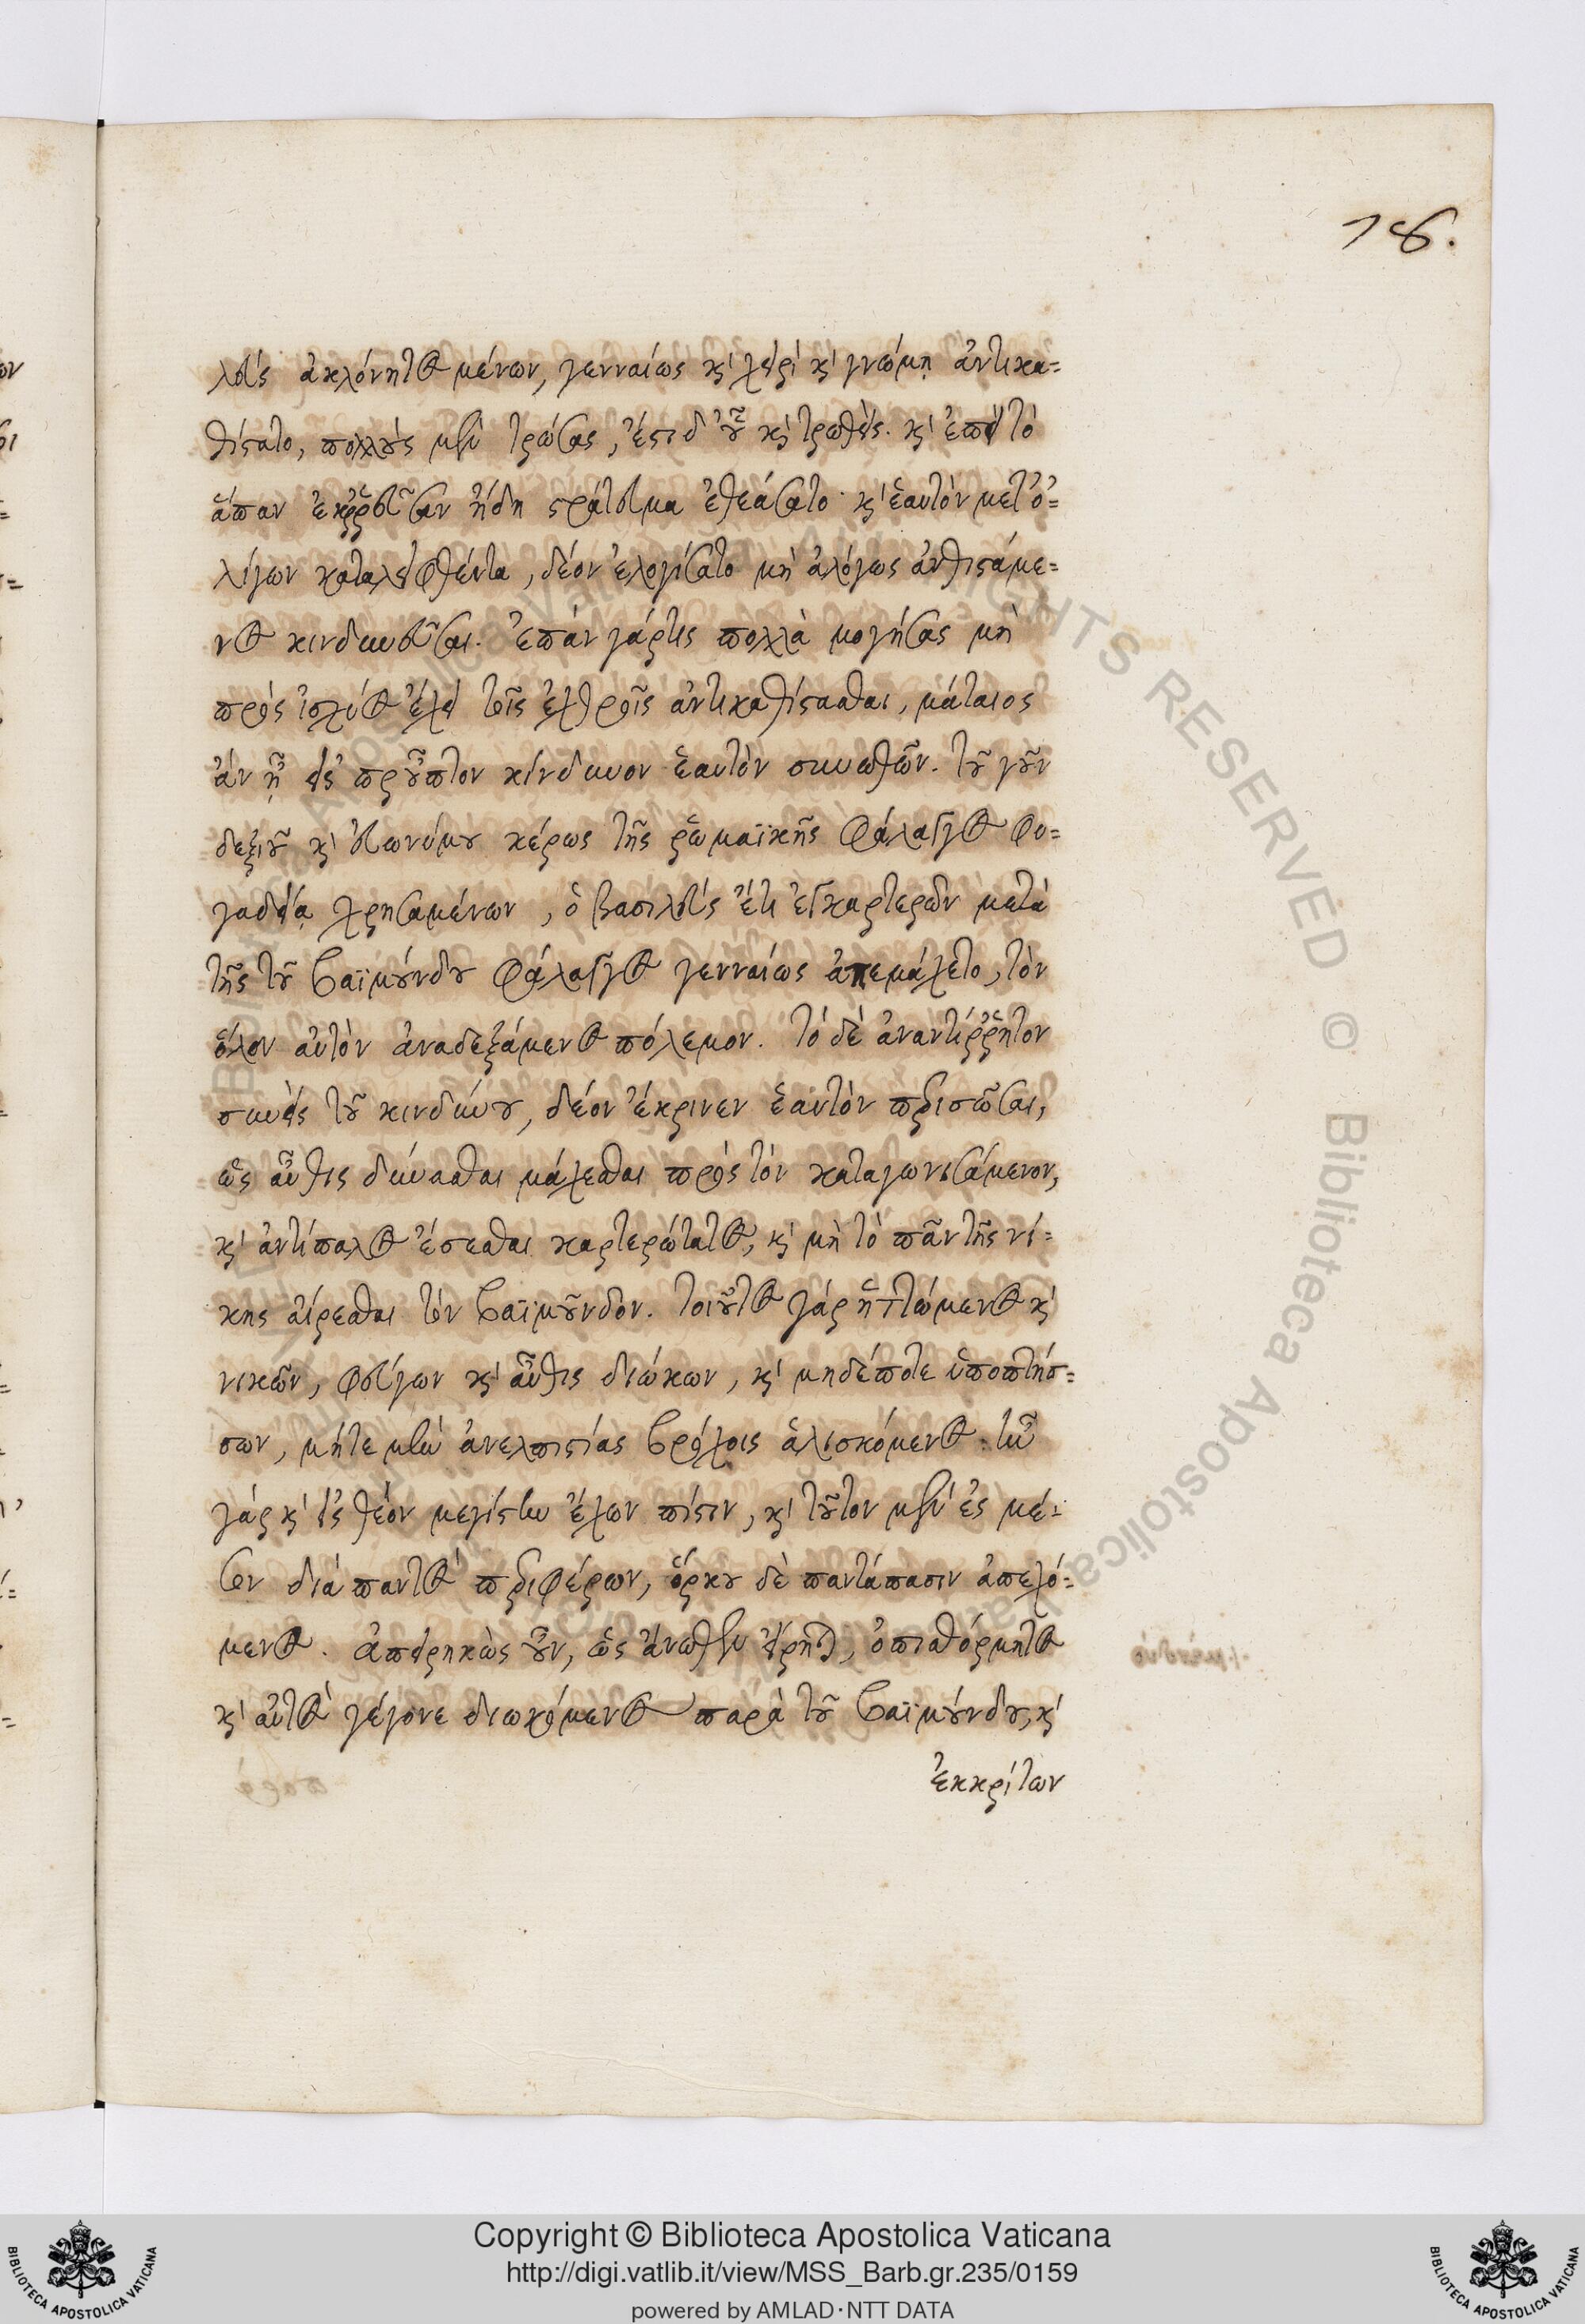 78.
λεὺς ἀκλόνητος μένων, γενναίως κ̀ χειρὶ κ̀ γνώμῃ ἀντικα=
θίστατο, πολλοὺς μὲν τρώσας, ἔστι δ' οὗ κ̀ τρωθείς. κ̀ ἐπεὶ τὸ
ἅπαν ἐκῤῥεῦσαν ἤδη στράτευμα ἐθεάσατο κ̀ ἑαυτὸν μετ' ὀ=
λίγων καταλειφθέντα, δέον ἐλογίσατο μὴ ἀλόγως ἀνθιστάμε=
νος κινδυνεῦσαι. Ἐπὰν γάρ τις πολλὰ μογήσας μὴ
πρὸς ἰσχύος ἔχει τοῖς ἐχθροῖς ἀντικαθίστασθαι, μάταιος
ἂν ᾖ εἰς προῦπτον κίνδυνον ἑαυτὸν συνωθῶν. τοῦ γοῦν
δεξιοῦ κ̀ εὐωνύμου κέρως τῆς ῥωμαϊκῆς φάλαγγος φυ=
γαδείᾳ χρησαμένων, ὁ βασιλεὺς ἔτι ἐγκαρτερῶν μετὰ
τῆς τοῦ βαϊμούνδου φάλαγγος γενναίως ἀπεμάχετο, τὸν
ὅλον αὐτὸν ἀναδεξάμενος πόλεμον. τὸ δὲ ἀναντίῤῥητον
συνεὶς τοῦ κινδύνου, δέον ἔκρινεν ἑαυτὸν περισῶσαι,
ὡς αὖθις δύνασθαι μάχεσθαι πρὸς τὸν καταγωνισάμενον,
κ̀ ἀντίπαλος ἔσεσθαι καρτερώτατος, κ̀ μὴ τὸ πᾶν τῆς νί=
κης αἴρεσθαι τὸν βαϊμοῦνδον. τοιοῦτος γὰρ ἡττώμενος κ̀
νικῶν, φεύγων κ̀ αὖθις διώκων, κ̀ μηδέποτε ὑποπτήσ=
σων, μήτε μὴν ἀνελπιστίας βρόχοις ἁλισκόμενος. ἦν
γὰρ κ̀ εἰς θεὸν μεγίστην ἔχων πίστιν, κ̀ τοῦτον μὲν ἐς μέ=
σον διὰ παντὸς περιφέρων, ὅρκου δὲ παντάπασιν ἀπεχό=
μενος. ἀπειρηκὼς οὖν, ὡς ἄνωθεν εἴρηται, ὀπισθόρμητος
κ̀ αὐτὸς γέγονε διωκόμενος παρὰ τοῦ βαϊμούνδου, κ̀
ἐκκρίτων
Copyright © Biblioteca Apostolica Vaticana
http://digi.vatlib.it/view/MSS_Barb.gr.235/0159
powered by AMLAD·NTT DATA